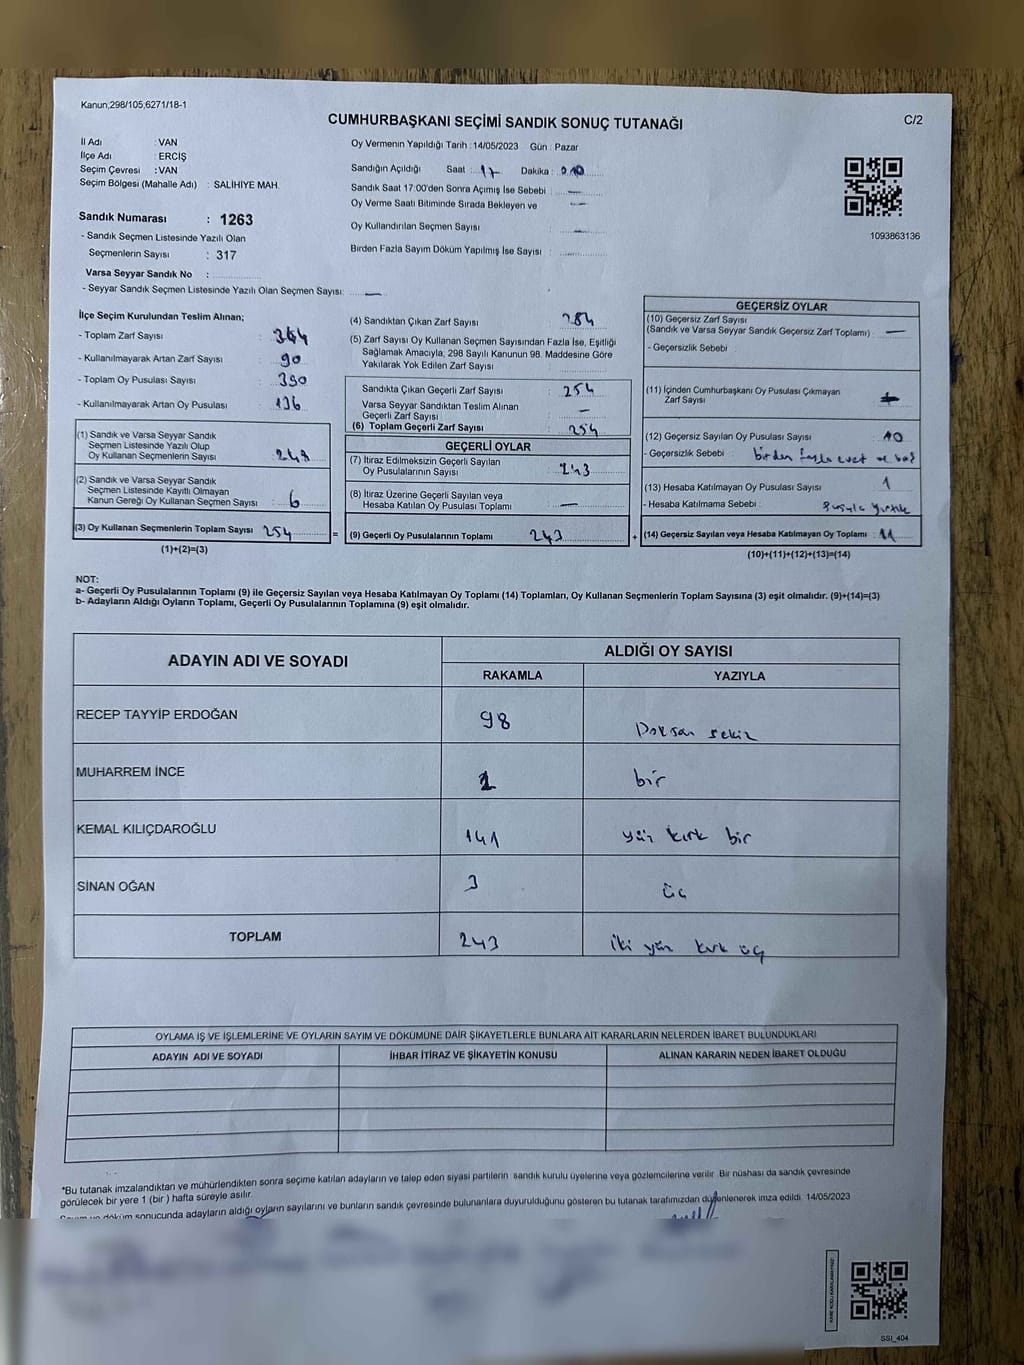 Kanun,298/105,6271/18-1
CUMHURBAŞKANI SEÇİMİ SANDIK SONUÇ TUTANAĞI
C/2
İl Adı : VAN
İlçe Adı : ERCİŞ
Seçim Çevresi : VAN
Seçim Bölgesi (Mahalle Adı) : SALİHİYE MAH.
Sandık Numarası : 1263
- Sandık Seçmen Listesinde Yazılı Olan
Seçmenlerin Sayısı : 317
Varsa Seyyar Sandık No :
- Seyyar Sandık Seçmen Listesinde Yazılı Olan Seçmen Sayısı: —
Oy Vermenin Yapıldığı Tarih : 14/05/2023 Gün : Pazar
Sandığın Açıldığı Saat : 17 Dakika :
Sandık Saat 17:00'den Sonra Açımış İse Sebebi : —
Oy Verme Saati Bitiminde Sırada Bekleyen ve —
Oy Kullandırılan Seçmen Sayısı : —
Birden Fazla Sayım Döküm Yapılmış İse Sayısı :
1093863136
İlçe Seçim Kurulundan Teslim Alınan;
- Toplam Zarf Sayısı : 344
- Kullanılmayarak Artan Zarf Sayısı : 90
- Toplam Oy Pusulası Sayısı : 390
- Kullanılmayarak Artan Oy Pusulası : 136
(1) Sandık ve Varsa Seyyar Sandık
Seçmen Listesinde Yazılı Olup
Oy Kullanan Seçmenlerin Sayısı : 248
(2) Sandık ve Varsa Seyyar Sandık
Seçmen Listesinde Kayıtlı Olmayan
Kanun Gereği Oy Kullanan Seçmen Sayısı : 6
(3) Oy Kullanan Seçmenlerin Toplam Sayısı 254
(1)+(2)=(3)
(4) Sandıktan Çıkan Zarf Sayısı : 254
(5) Zarf Sayısı Oy Kullanan Seçmen Sayısından Fazla İse, Eşitliği
Sağlamak Amacıyla, 298 Sayılı Kanunun 98. Maddesine Göre
Yakılarak Yok Edilen Zarf Sayısı :
Sandıkta Çıkan Geçerli Zarf Sayısı : 254
Varsa Seyyar Sandıktan Teslim Alınan
Geçerli Zarf Sayısı : —
(6) Toplam Geçerli Zarf Sayısı : 254
GEÇERLİ OYLAR
(7) İtiraz Edilmeksizin Geçerli Sayılan
Oy Pusulalarının Sayısı : 243
(8) İtiraz Üzerine Geçerli Sayılan veya
Hesaba Katılan Oy Pusulası Toplamı : —
= (9) Geçerli Oy Pusulalarının Toplamı 243
GEÇERSİZ OYLAR
(10) Geçersiz Zarf Sayısı
(Sandık ve Varsa Seyyar Sandık Geçersiz Zarf Toplamı) : —
- Geçersizlik Sebebi
(11) İçinden Cumhurbaşkanı Oy Pusulası Çıkmayan
Zarf Sayısı :
(12) Geçersiz Sayılan Oy Pusulası Sayısı : 10
- Geçersizlik Sebebi : birden fazla evet
(13) Hesaba Katılmayan Oy Pusulası Sayısı : 1
- Hesaba Katılmama Sebebi : yırtık
+ (14) Geçersiz Sayılan veya Hesaba Katılmayan Oy Toplamı : 11
(10)+(11)+(12)+(13)=(14)
NOT:
a- Geçerli Oy Pusulalarının Toplamı (9) ile Geçersiz Sayılan veya Hesaba Katılmayan Oy Toplamı (14) Toplamları, Oy Kullanan Seçmenlerin Toplam Sayısına (3) eşit olmalıdır. (9)+(14)=(3)
b- Adayların Aldığı Oyların Toplamı, Geçerli Oy Pusulalarının Toplamına (9) eşit olmalıdır.
ADAYIN ADI VE SOYADI
ALDIĞI OY SAYISI
RAKAMLA YAZIYLA
RECEP TAYYİP ERDOĞAN 98 Doksan sekiz
MUHARREM İNCE 1 bir
KEMAL KILIÇDAROĞLU 141 yüz kırk bir
SİNAN OĞAN 3 üç
TOPLAM 243 iki yüz kırk üç
OYLAMA İŞ VE İŞLEMLERİNE VE OYLARIN SAYIM VE DÖKÜMÜNE DAİR ŞİKAYETLERLE BUNLARA AİT KARARLARIN NELERDEN İBARET BULUNDUKLARI
ADAYIN ADI VE SOYADI İHBAR İTİRAZ VE ŞİKAYETİN KONUSU ALINAN KARARIN NEDEN İBARET OLDUĞU
*Bu tutanak imzalandıktan ve mühürlendikten sonra seçime katılan adayların ve talep eden siyasi partilerin sandık kurulu üyelerine veya gözlemcilerine verilir. Bir nüshası da sandık çevresinde
görülecek bir yere 1 (bir ) hafta süreyle asılır.
Sayım ve döküm sonucunda adayların aldığı oyların sayılarını ve bunların sandık çevresinde bulunanlara duyurulduğunu gösteren bu tutanak tarafımızdan düzenlenerek imza edildi. 14/05/2023
SSI_404